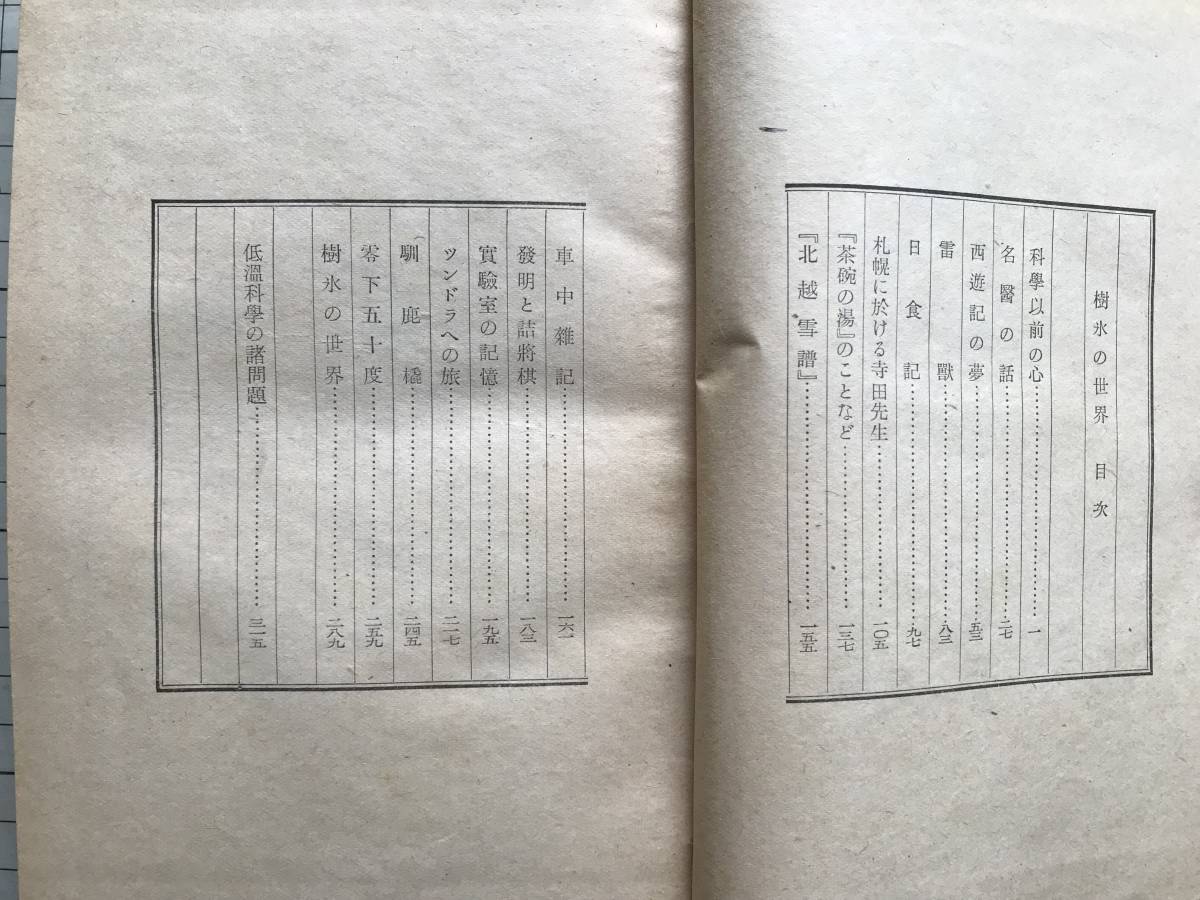 樹氷の世界 目次
科學以前の心…………一
名醫の話…………二七
西遊記の夢…………五三
雷獸…………八三
日食記…………九七
札幌に於ける寺田先生…………一〇五
『茶碗の湯』のことなど…………一三七
『北越雪譜』…………一五五
車中雜記…………一六一
發明と詰將棋…………一八三
實驗室の記憶…………一九五
ツンドラへの旅…………二一七
馴鹿橇…………二四五
零下五十度…………二五九
樹氷の世界…………二八九
低溫科學の諸問題…………三一五